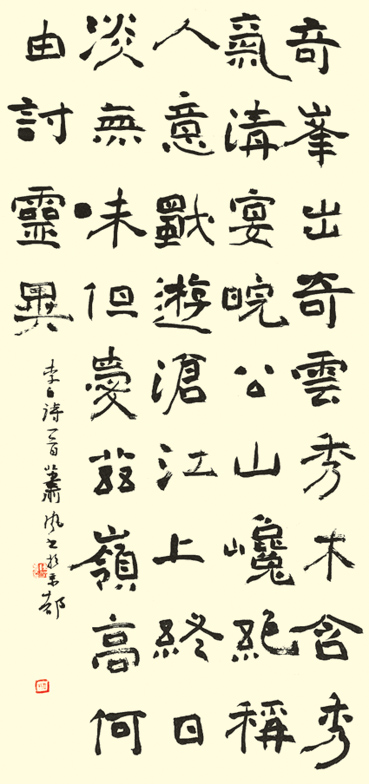 竒峯出奇雲秀木含秀
氣清宴晥公山巉絕稱
人意獨遊滄江上終日
淡無味但愛茲嶺高何
由討靈異
李白詩一首蕭風書於京都